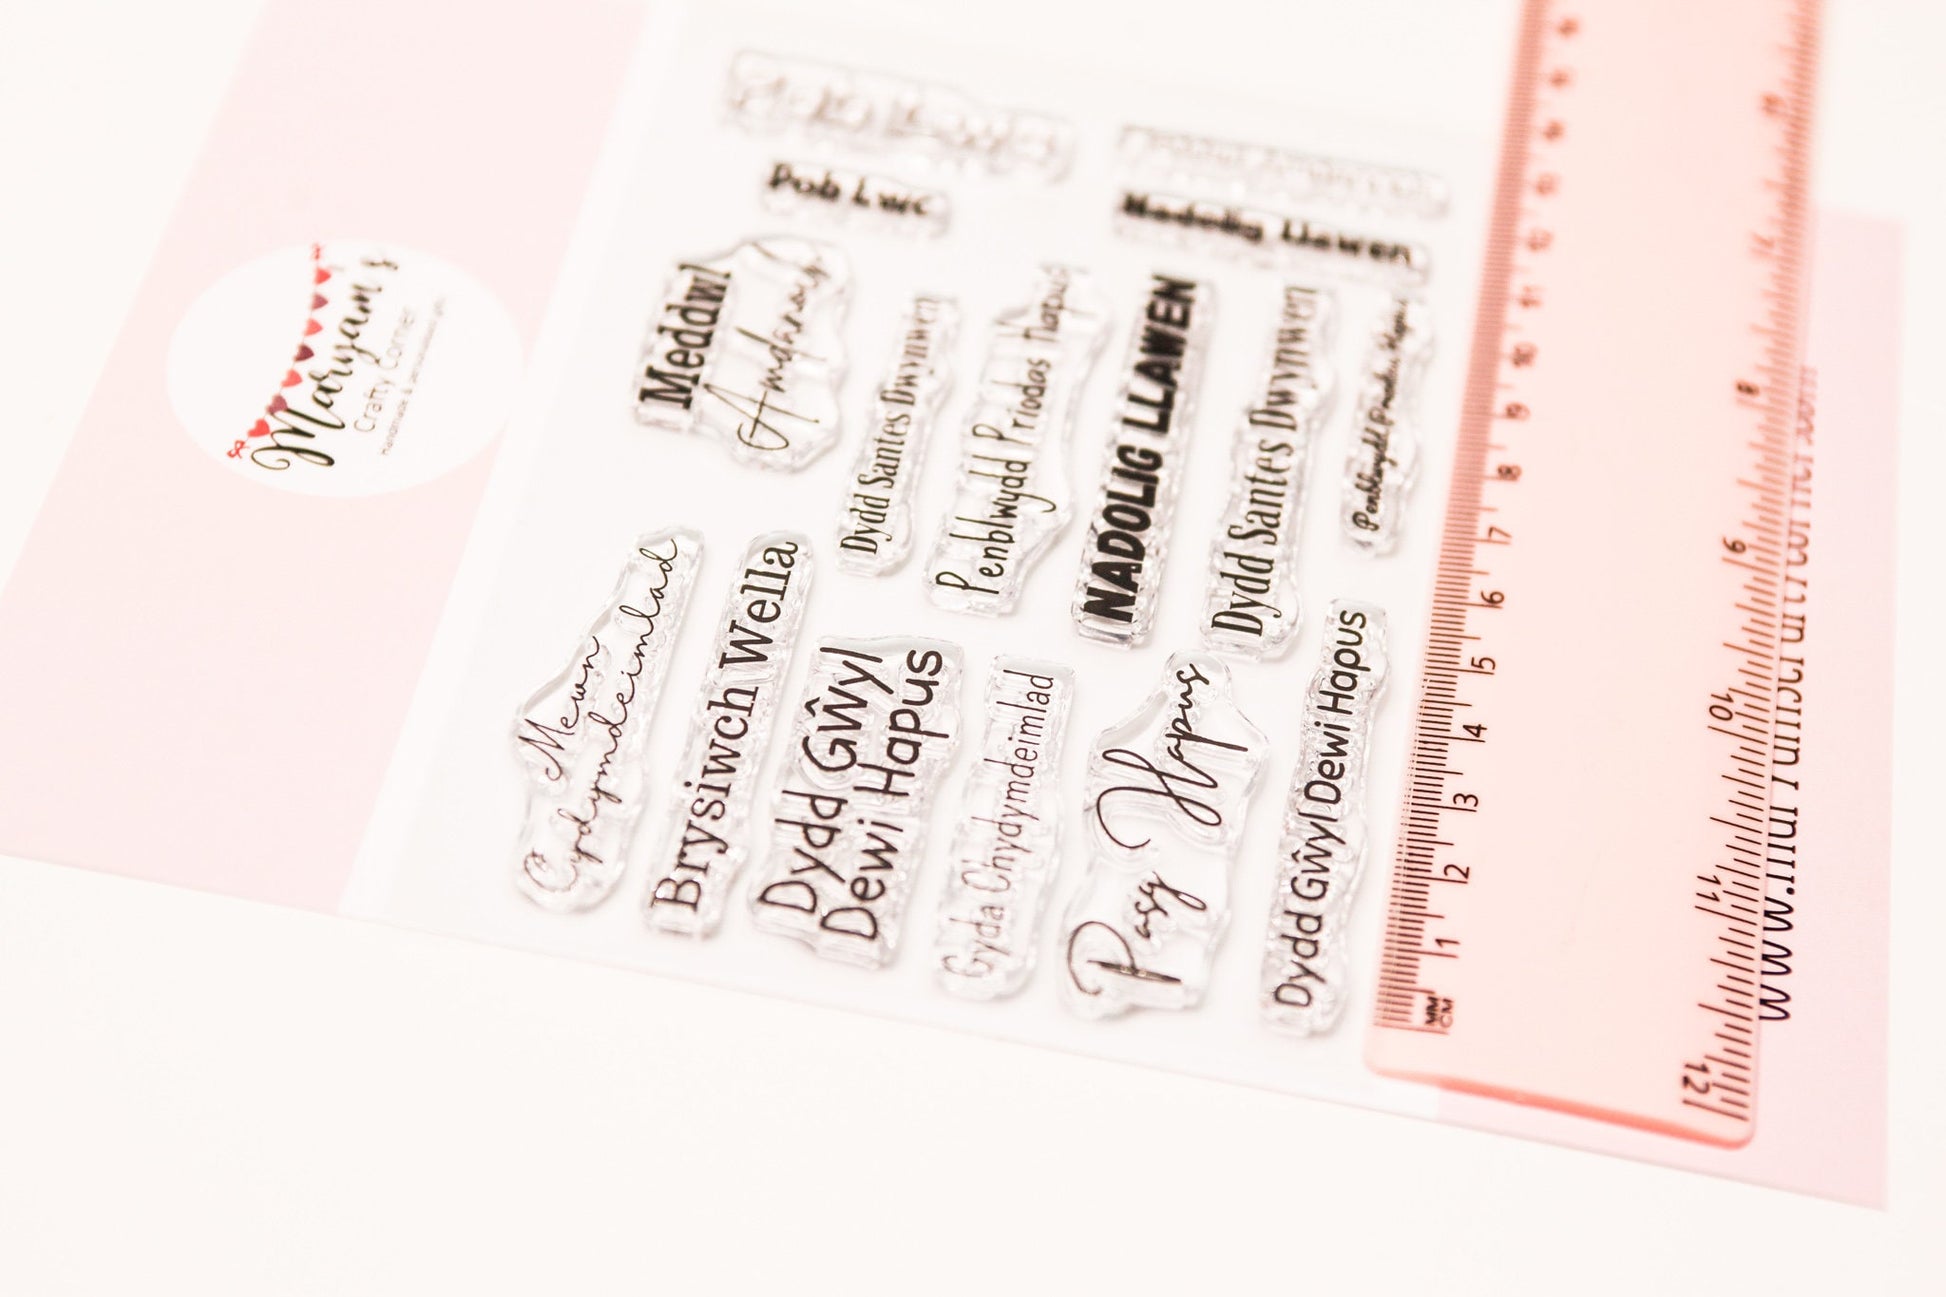 Maryam's
Crafty Corner
Pob Lwc
Nadolig Llawen
Meddwl
Amdanoch
Dydd Santes Dwynwen
Penblwydd Priodas Hapus
NADOLIG LLAWEN
Dydd Santes Dwynwen
Penblwydd Priodas Hapus
Mewn
Cydymdeimlad
Brysiwch Wella
Dydd Gŵyl
Dewi Hapus
Gyda Chydymdeimlad
Pasg Hapus
Dydd Gŵyl Dewi Hapus
MM
CM
1 2 3 4 5 6 7 8 9 10 11 12 13
12 11 10 9 8 7